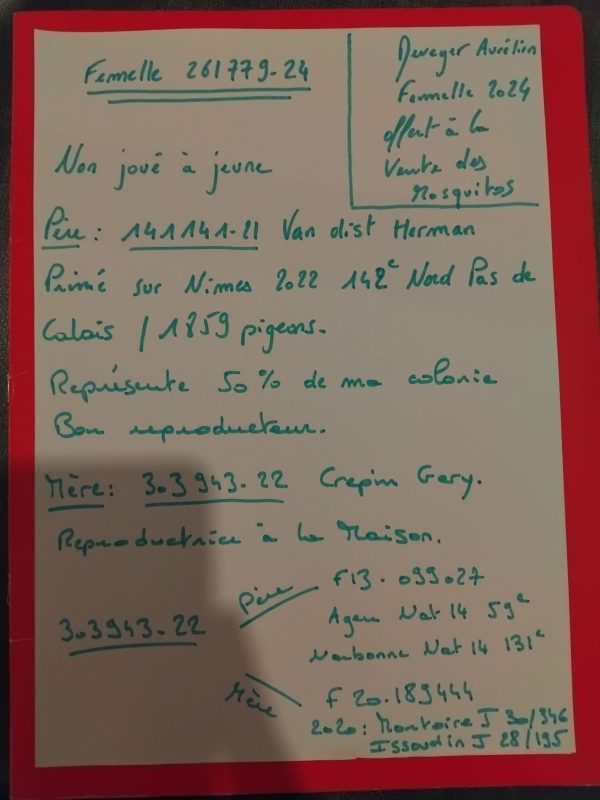 Femelle 261779-24
Deweyer Aurélien
Femelle 2024
offert à la
Vente des
Mosquitos
Non joué à jeune
Père : 141141-21 Van dist Herman
Primé sur Nimes 2022 142e Nord Pas de
Calais / 1859 pigeons.
Représente 50% de ma colonie
Bon reproducteur.
Mère : 303943.22 Crepin Gery.
Reproductrice à la Maison.
303943-22
Père F13. 099027
Agen Nat 14 59e
Narbonne Nat 14 131e
Mère F 20.189444
2020 : Montoire J 30/346
Issoudin J 28/195